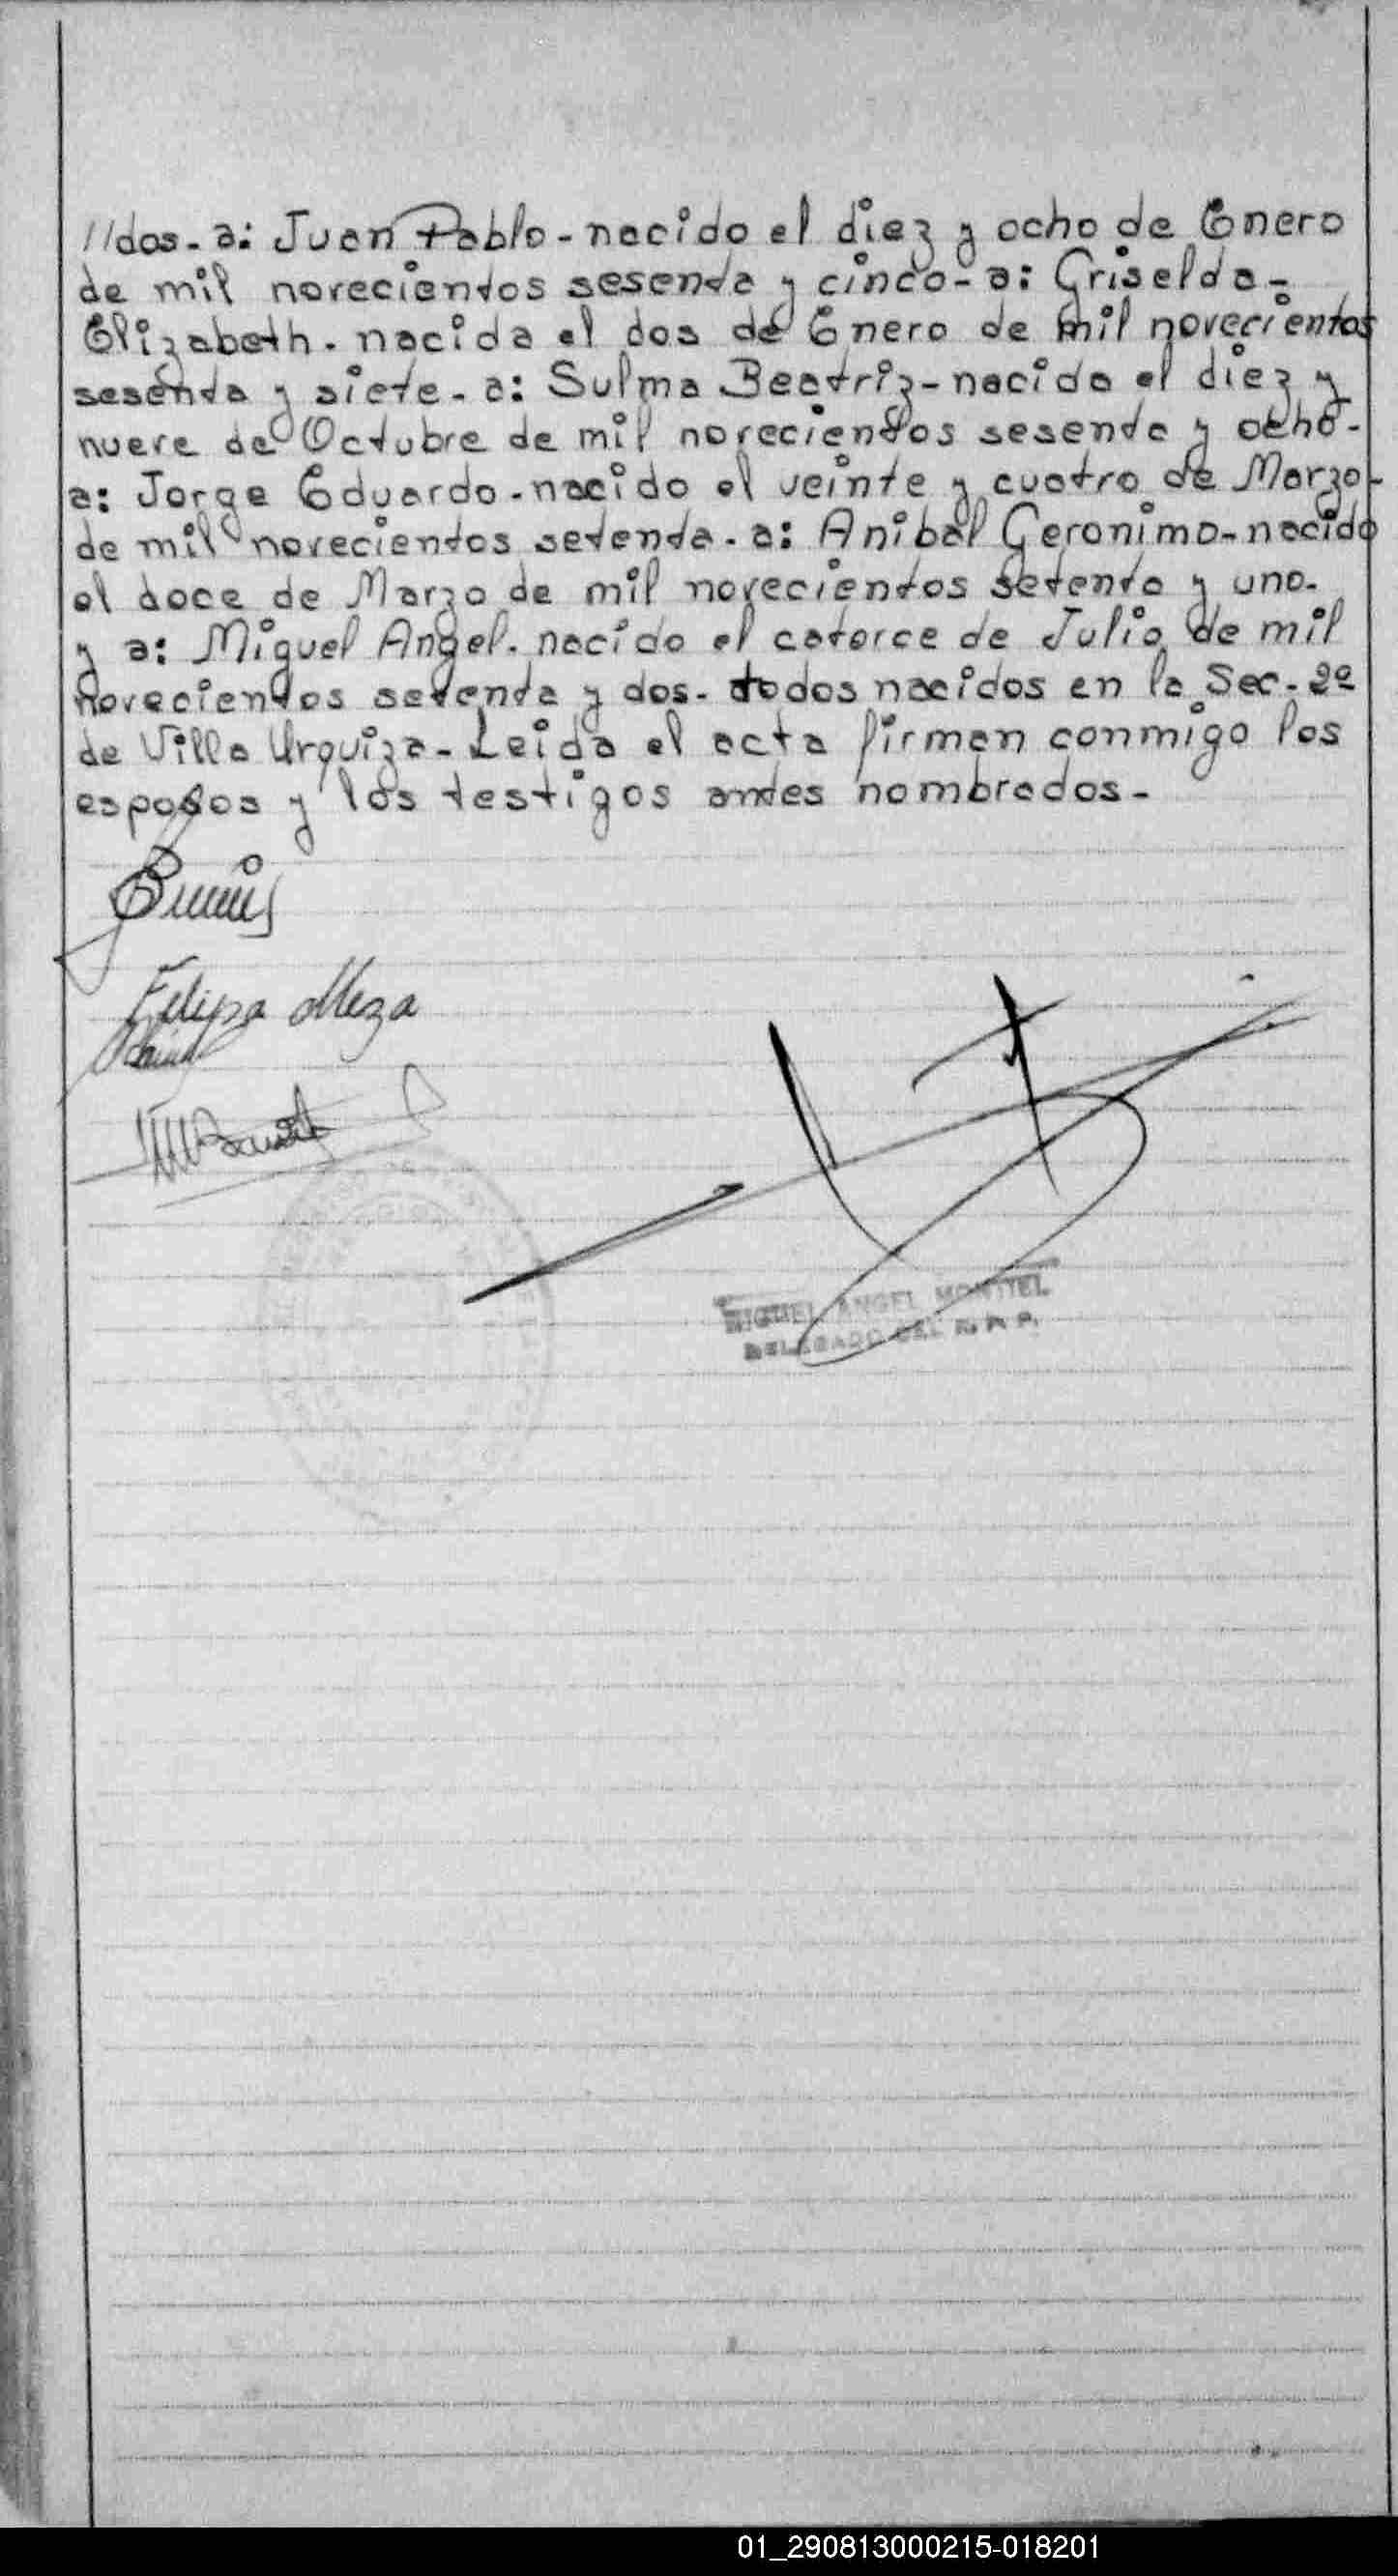 //dos- a: Juan Pablo-nacido el diez y ocho de Enero
de mil novecientos sesenta y cinco- a: Griselda-
Elizabeth. nacida el dos de Enero de mil novecientos
sesenta y siete- a: Sulma Beatriz-nacida el diez y
nueve de Octubre de mil novecientos sesenta y ocho-
a: Jorge Eduardo-nacido el veinte y cuatro de Marzo-
de mil novecientos setenta- a: Anibal Geronimo-nacido
el doce de Marzo de mil novecientos setenta y uno-
y a: Miguel Angel. nacido el catorce de Julio de mil
novecientos setenta y dos- todos nacidos en la Sec-2º
de Villa Urquiza- Leida el acta firman conmigo los
esposos y los testigos antes nombrados-
Felipa Meza
MIGUEL ANGEL MONTIEL
DELEGADO DEL
01_290813000215-018201